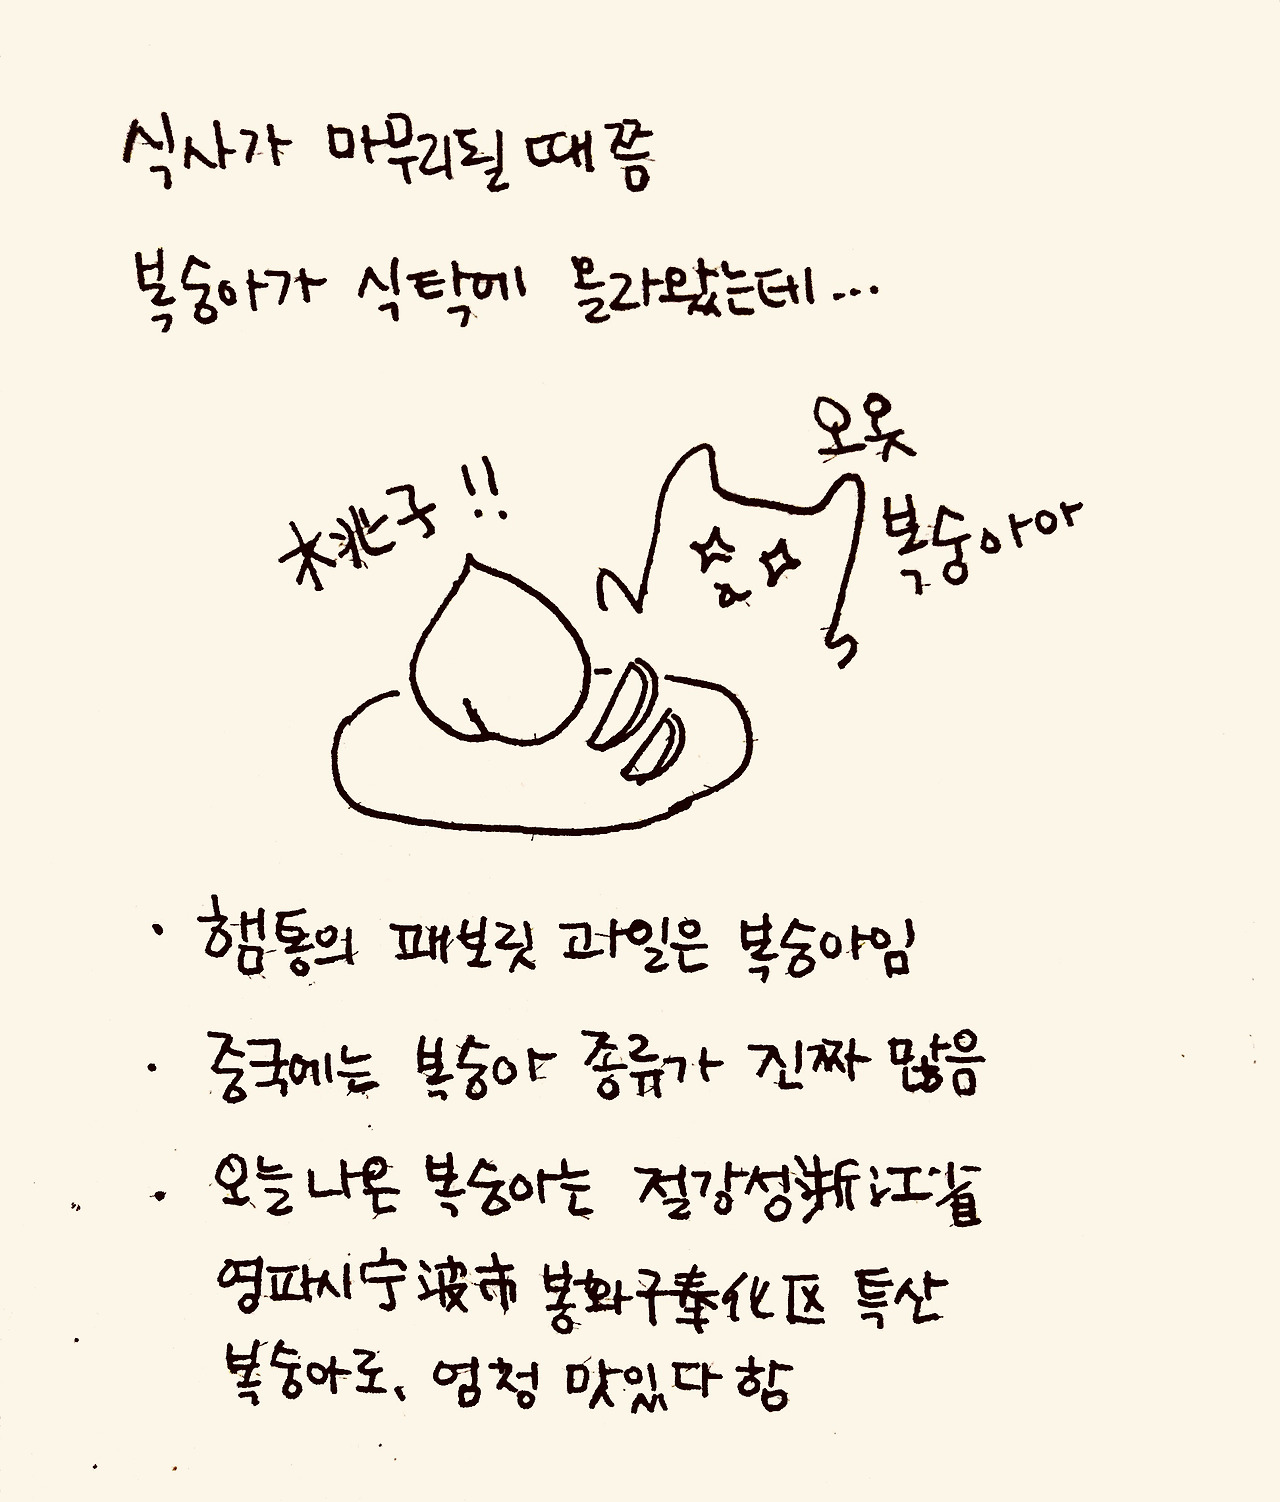 식사가 마무리될 때쯤
복숭아가 식탁에 올라왔는데...
오옷
桃子!!
복숭아아
· 햄통의 패보릿 과일은 복숭아임
· 중국에는 복숭아 종류가 진짜 많음
· 오늘 나온 복숭아는 절강성浙江省
영파시宁波市 봉화구奉化区 특산
복숭아로, 엄청 맛있다 함